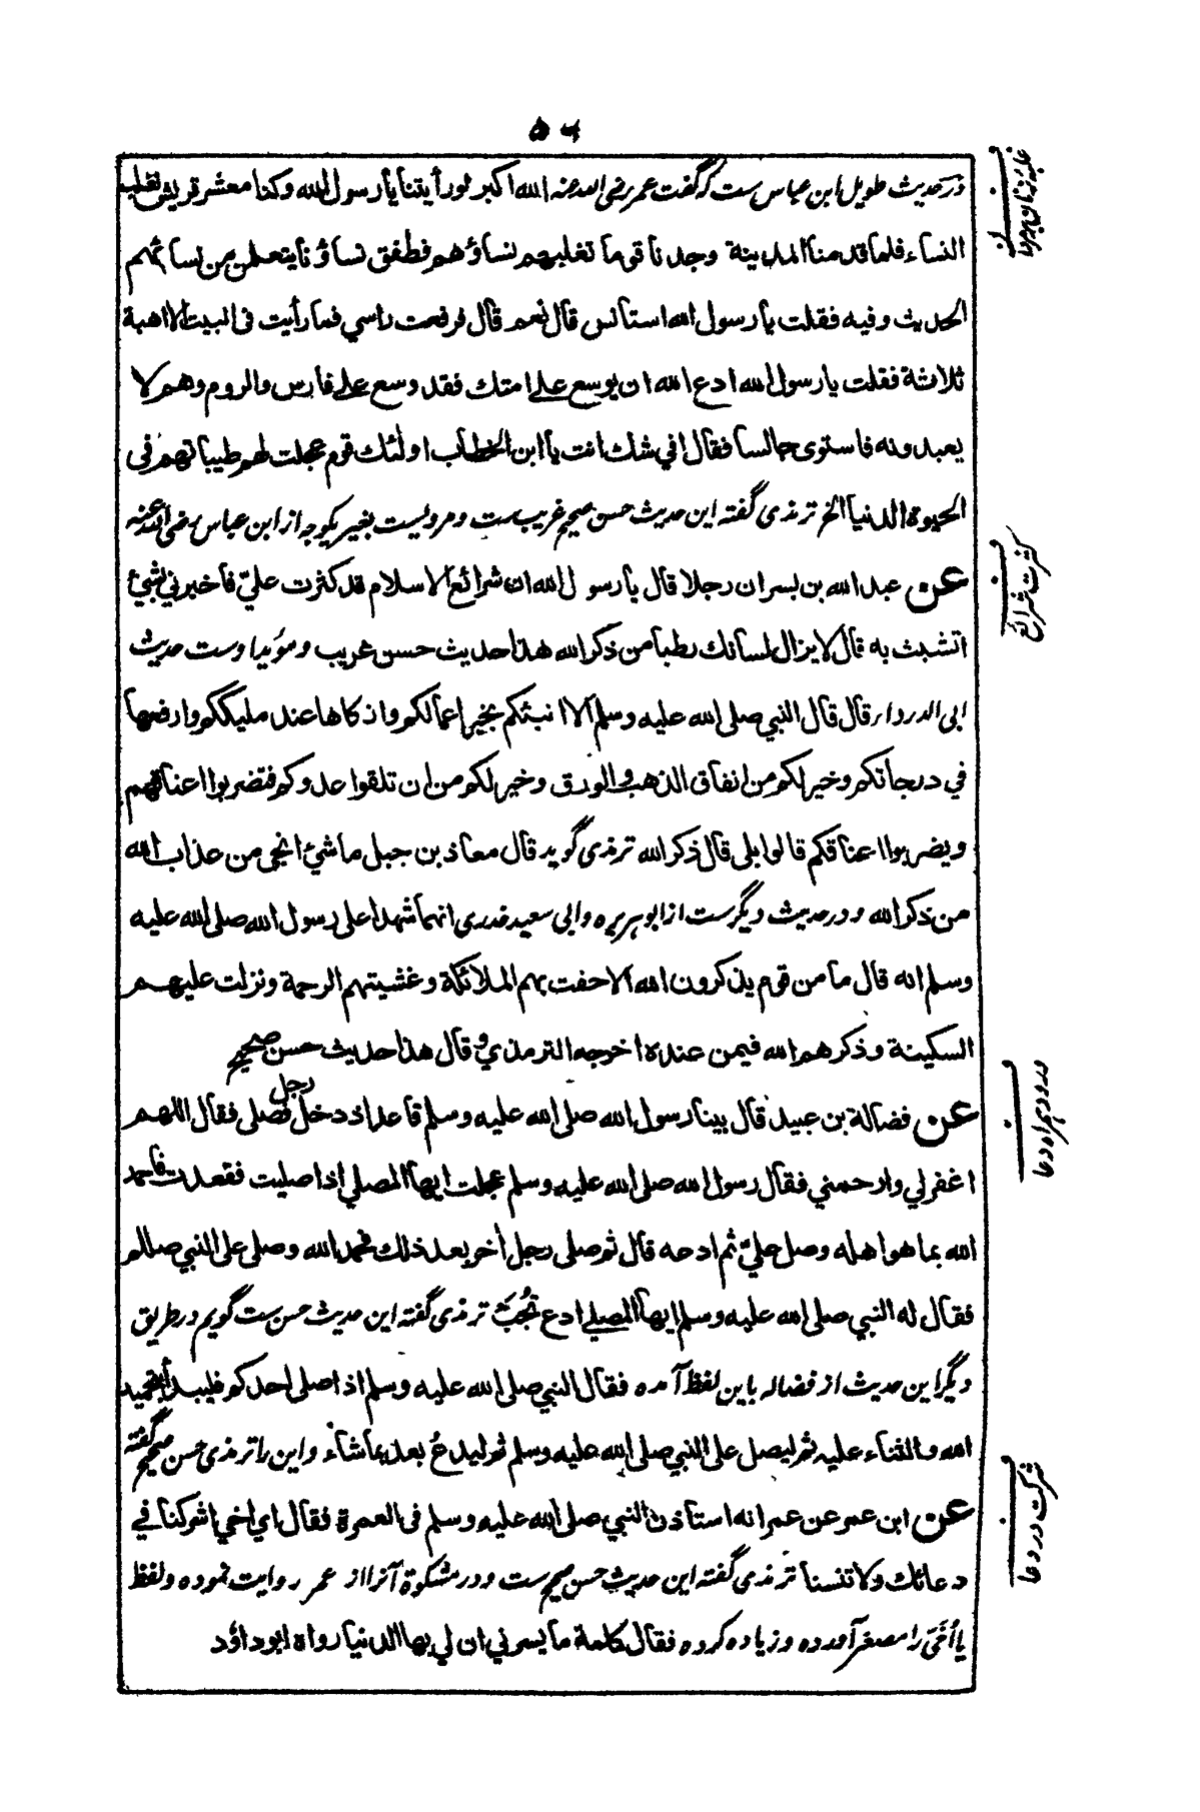 ۵۶
در حدیث طویل ابن عباس ست که گفت عمر رضی الله عنه الله اکبر لو رأیتنا یا رسول الله وکنا معشر قریش نغلب
النساء فلما قدمنا المدینة وجدنا قوما تغلبهم نساؤهم فطفق نساؤنا یتعلمن من نسائهم
الحدیث وفیه فقلت یا رسول الله استانس قال نعم قال فرفعت راسی فما رأیت فی البیت الا اهبة
ثلاثة فقلت یا رسول الله ادع الله ان یوسع علی امتك فقد وسع علی فارس والروم وهم لا
یعبدونه فاستوی جالسا فقال افی شك انت یا ابن الخطاب اولئك قوم عجلت لهم طیباتهم فی
الحیوة الدنیا الخ ترمذی گفته این حدیث حسن صحیح غریب ست ومرویست بغیر یکوجه از ابن عباس رضی الله عنه
عن عبد الله بن بسر ان رجلا قال یا رسول الله ان شرائع الاسلام قد کثرت علیّ فاخبرنی بشیئ
اتشبث به قال لا یزال لسانك رطبا من ذکر الله هذا حدیث حسن غریب ومؤید اوست حدیث
ابی الدرداء قال قال النبی صلی الله علیه وسلم ألا انبئکم بخیر اعمالکم وازکاها عند ملیککم وارفعها
فی درجاتکم وخیر لکم من انفاق الذهب والورق وخیر لکم من ان تلقوا عدوکم فتضربوا اعناقهم
ویضربوا اعناقکم قالوا بلی قال ذکر الله ترمذی گوید قال معاذ بن جبل ما شیئ انجی من عذاب الله
من ذکر الله ودر حدیث دیگر ست از ابو هریره وابی سعید خدری انهما شهدا علی رسول الله صلی الله علیه
وسلم انه قال ما من قوم یذکرون الله الا حفت بهم الملائکة وغشیتهم الرحمة ونزلت علیهم
السکینة وذکرهم الله فیمن عنده اخرجه الترمذی وقال هذا حدیث حسن صحیح
عن فضالة بن عبید قال بینا رسول الله صلی الله علیه وسلم قاعد اذ دخل رجل فصلی فقال اللهم
اغفر لی وارحمنی فقال رسول الله صلی الله علیه وسلم عجلت ایها المصلی اذا صلیت فقعدت فاحمد
الله بما هو اهله وصل علیّ ثم ادعه قال ثم صلی رجل أخر بعد ذلك فحمد الله وصلی علی النبی صلالم
فقال له النبی صلی الله علیه وسلم ایها المصلی ادع تُجَبْ ترمذی گفته این حدیث حسن ست گویم در طریق
دیگر این حدیث از فضاله باین لفظ آمده فقال النبی صلی الله علیه وسلم اذا صلی احدکم فلیبدأ بتحمید
الله والثناء علیه ثم لیصل علی النبی صلی الله علیه وسلم ثم لیدع بعد بما شاء واین را ترمذی حسن صحیح گفته
عن ابن عمر عن عمر انه استاذن النبی صلی الله علیه وسلم فی العمرة فقال ای اخی اشرکنا فی
دعائك ولا تنسنا ترمذی گفته این حدیث حسن صحیح ست ودر مشکوة آنرا از عمر روایت نموده ولفظ
یا أُخَیّ را مصغر آورده وزیاده کرده فقال کلمة ما یسرنی ان لی بها الدنیا رواه ابو داؤد
کثرت شرائع
درود همراه دعا
شرکت در دعا